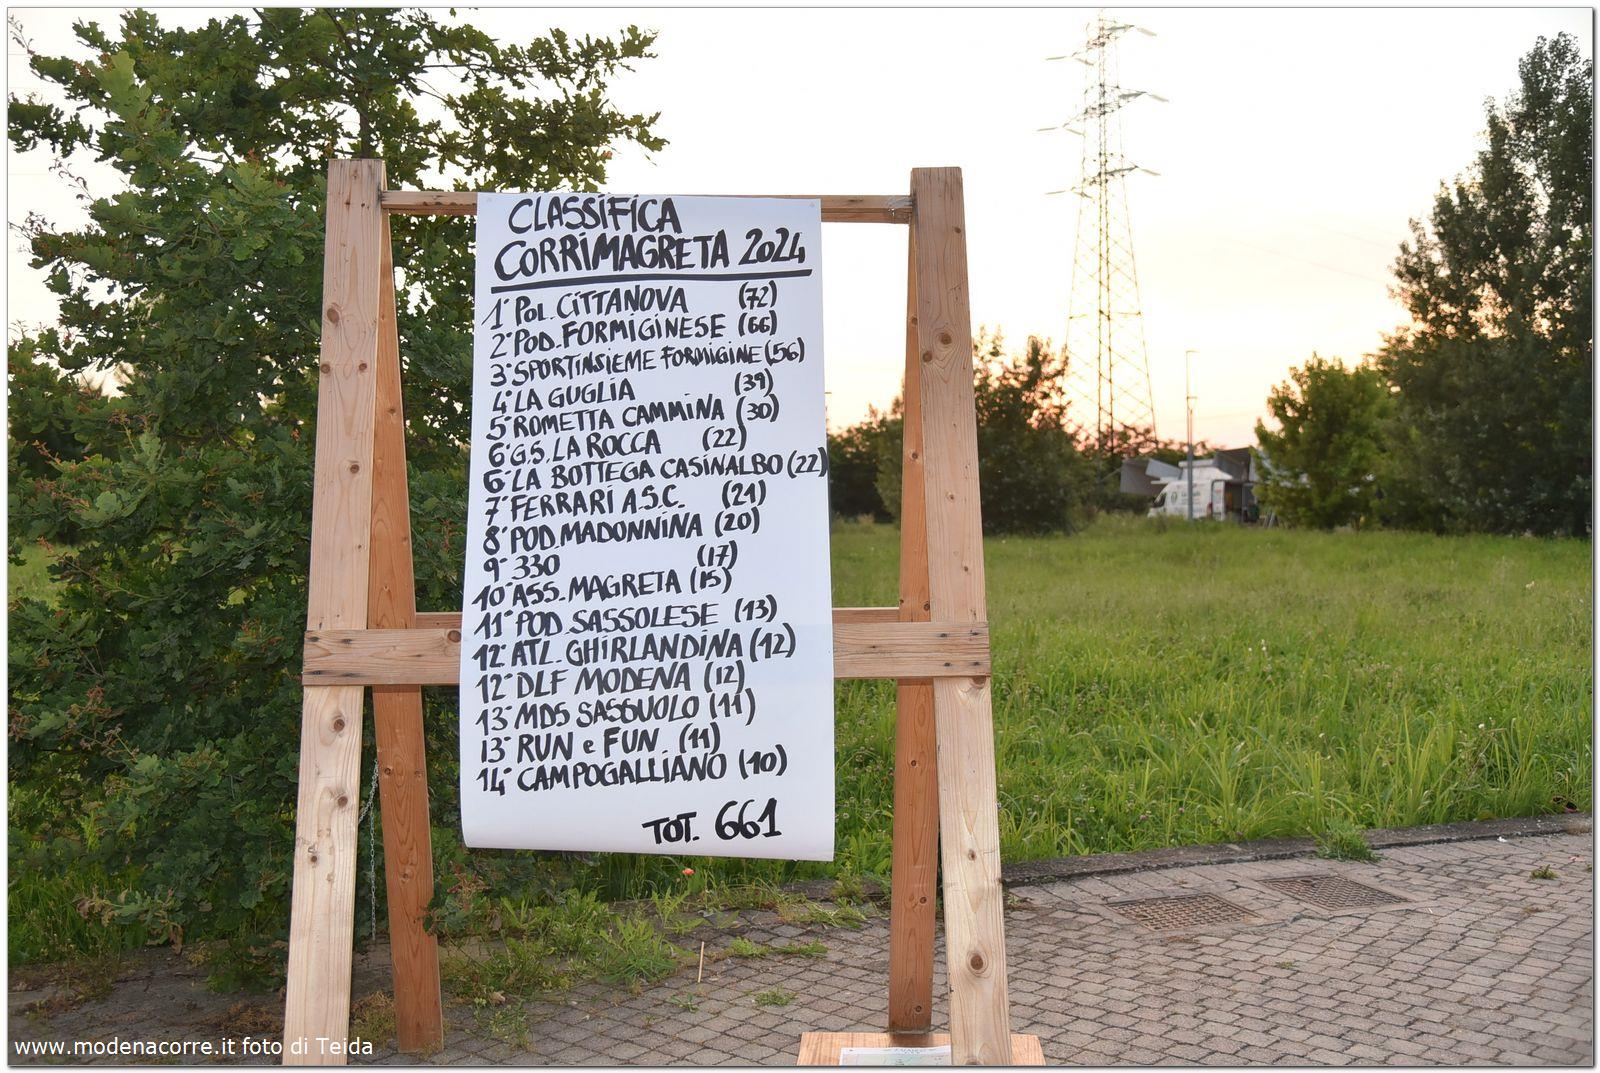 CLASSIFICA
CORRIMAGRETA 2024
1° POL. CITTANOVA (72)
2° POD. FORMIGINESE (66)
3° SPORTINSIEME FORMIGINE (56)
4° LA GUGLIA (39)
5° ROMETTA CAMMINA (30)
6° G.S. LA ROCCA (22)
6° LA BOTTEGA CASINALBO (22)
7° FERRARI A.S.C. (21)
8° POD. MADONNINA (20)
9° 330 (17)
10° ASS. MAGRETA (15)
11° POD. SASSOLESE (13)
12° ATL. GHIRLANDINA (12)
12° DLF MODENA (12)
13° MDS SASSUOLO (11)
13° RUN e FUN (11)
14° CAMPOGALLIANO (10)
TOT. 661
www.modenacorre.it foto di Teida